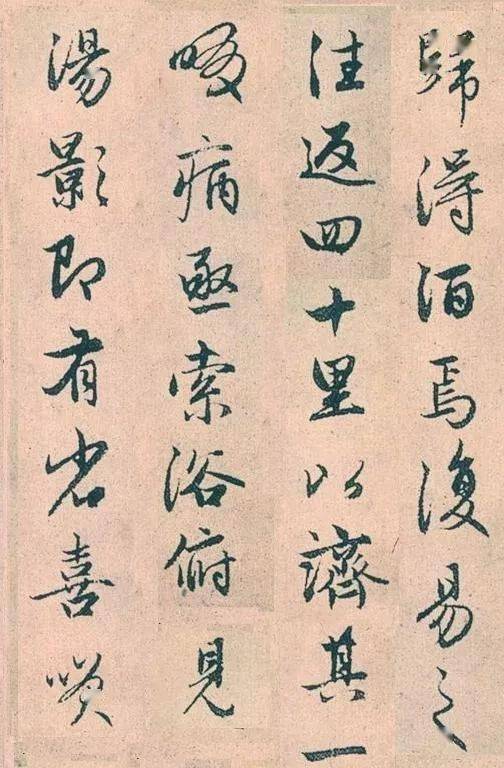 歸得酒焉復易之
往返四十里以濟其一
啜病亟索浴俯見
湯影即有省喜咲